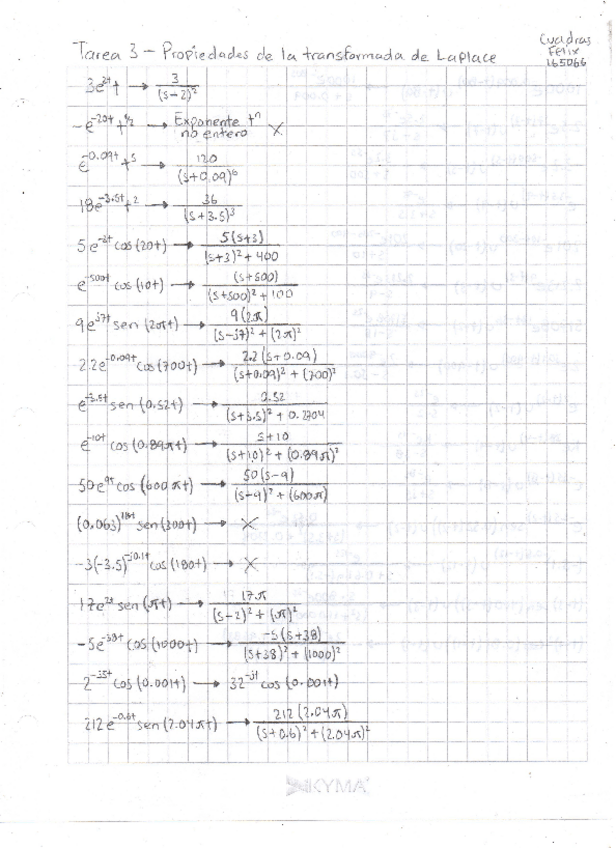 Tarea 3 - Propiedades de la transformada de Laplace
Cuadras
Felix
165066
3e^{2t} t → 3/(s-2)^2
-e^{-20t} t^{1/2} → Exponente t^n no entero X
e^{-0.09t} t^5 → 120/(s+0.09)^6
18e^{-3.5t} t^2 → 36/(s+3.5)^3
5e^{-3t} cos(20t) → 5(s+3)/(s+3)^2+400
e^{-500t} cos(10t) → (s+500)/(s+500)^2+100
9e^{37t} sen(2πt) → 9(2π)/(s-37)^2+(2π)^2
2.2e^{-0.09t} cos(700t) → 2.2(s+0.09)/(s+0.09)^2+(700)^2
e^{-3.5t} sen(0.52t) → 0.52/(s+3.5)^2+0.2704
e^{-10t} cos(0.89πt) → s+10/(s+10)^2+(0.89π)^2
50e^{9t} cos(600πt) → 50(s-9)/(s-9)^2+(600π)
sen(300t) → X
-3(-3.5) cos(180t) → X
17e^{2t} sen(πt) → 17π/(s-2)^2+(π)^2
-5e^{-38t} cos(1000t) → -5(s+38)/(s+38)^2+(1000)^2
cos(0.001t) → cos(0.001t)
212e^{-0.6t} sen(2.04πt) → 212(2.04π)/(s+0.6)^2+(2.04π)^2
KYMA